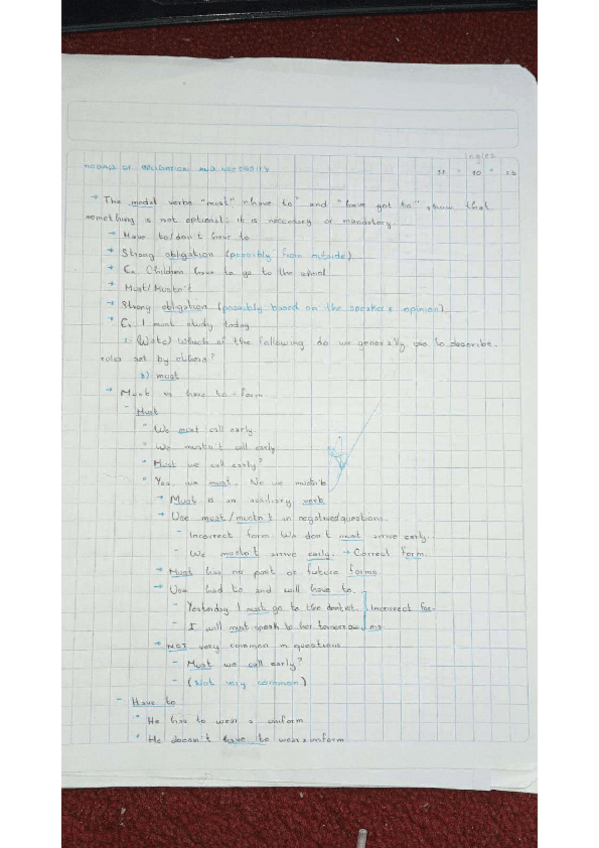 Ingles
MODALS OF OBLIGATION AND NECESSITY
→ The modal verbs "must" "have to" and "have got to", show that
something is not optional: it is neccesary or mandatory.
→ Have to/don't have to
→ Strong obligation (possibly from outside)
→ Ex. Children have to go to the school
→ Must/Mustn't
→ Strong obligation (possibly based on the speaker's opinion)
Ex. I must study today
Which of the following do we generally use to describe
rules set by others?
b) must
→ Must vs have to - form
- Must
We must call early.
We mustn't call early.
Must we call early?
Yes, we must. No we mustn't
→ Must is an auxiliary verb
→ Use must/mustn't in negatives/questions.
- Incorrect form. We don't must arrive early.
- We mustn't arrive early. → Correct form.
→ Must has no past or future forms
→ Use had to and will have to.
- Yesterday I must go to the dentist. } Incorrect for-
- I will must speak to her tomorrow ms
→ NOT very common in questions
- Must we call early?
- (Not very common)
- Have to
He has to wear a uniform
He doesn't have to wear a uniform